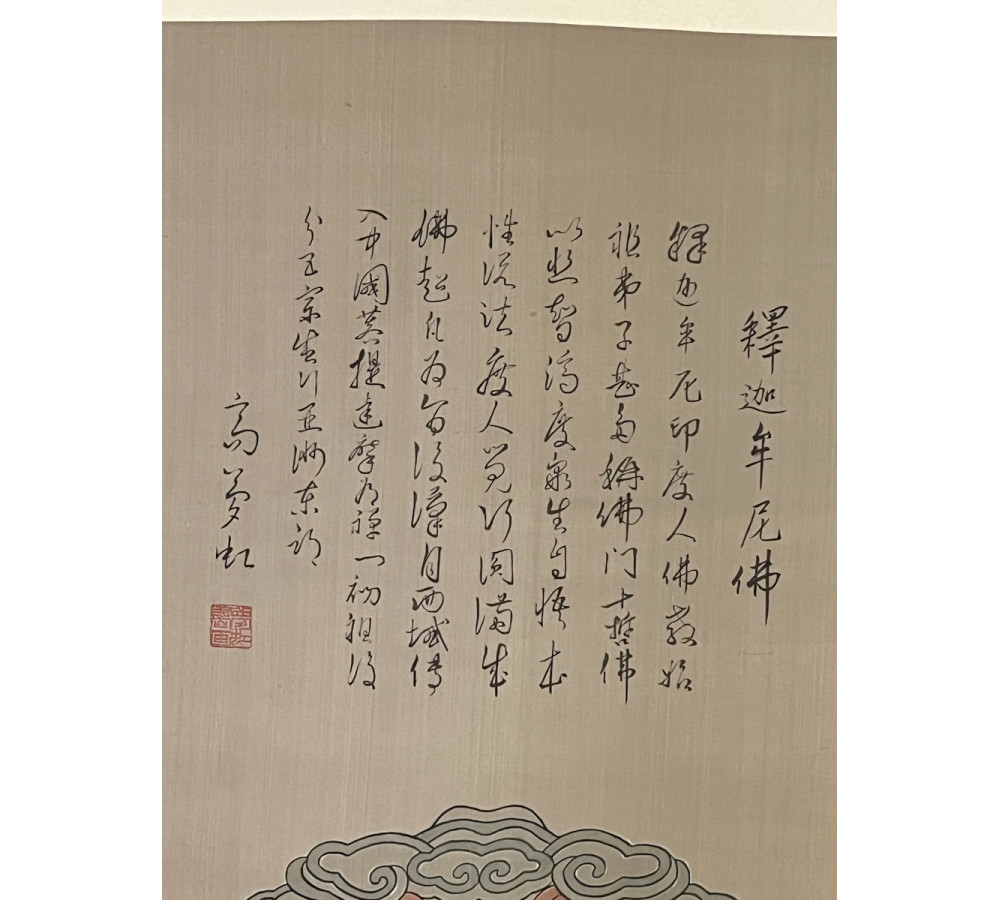 釋迦牟尼佛
釋迦牟尼印度人佛教始
祖弟子甚多稱佛門十哲佛
以悲智濟度眾生自悟本
性說法度人覺行圓滿成
佛起凡為聖後漢自西域傳
入中國菩提達摩為禪一初祖後
分五宗生行亞洲東部
高夢虹